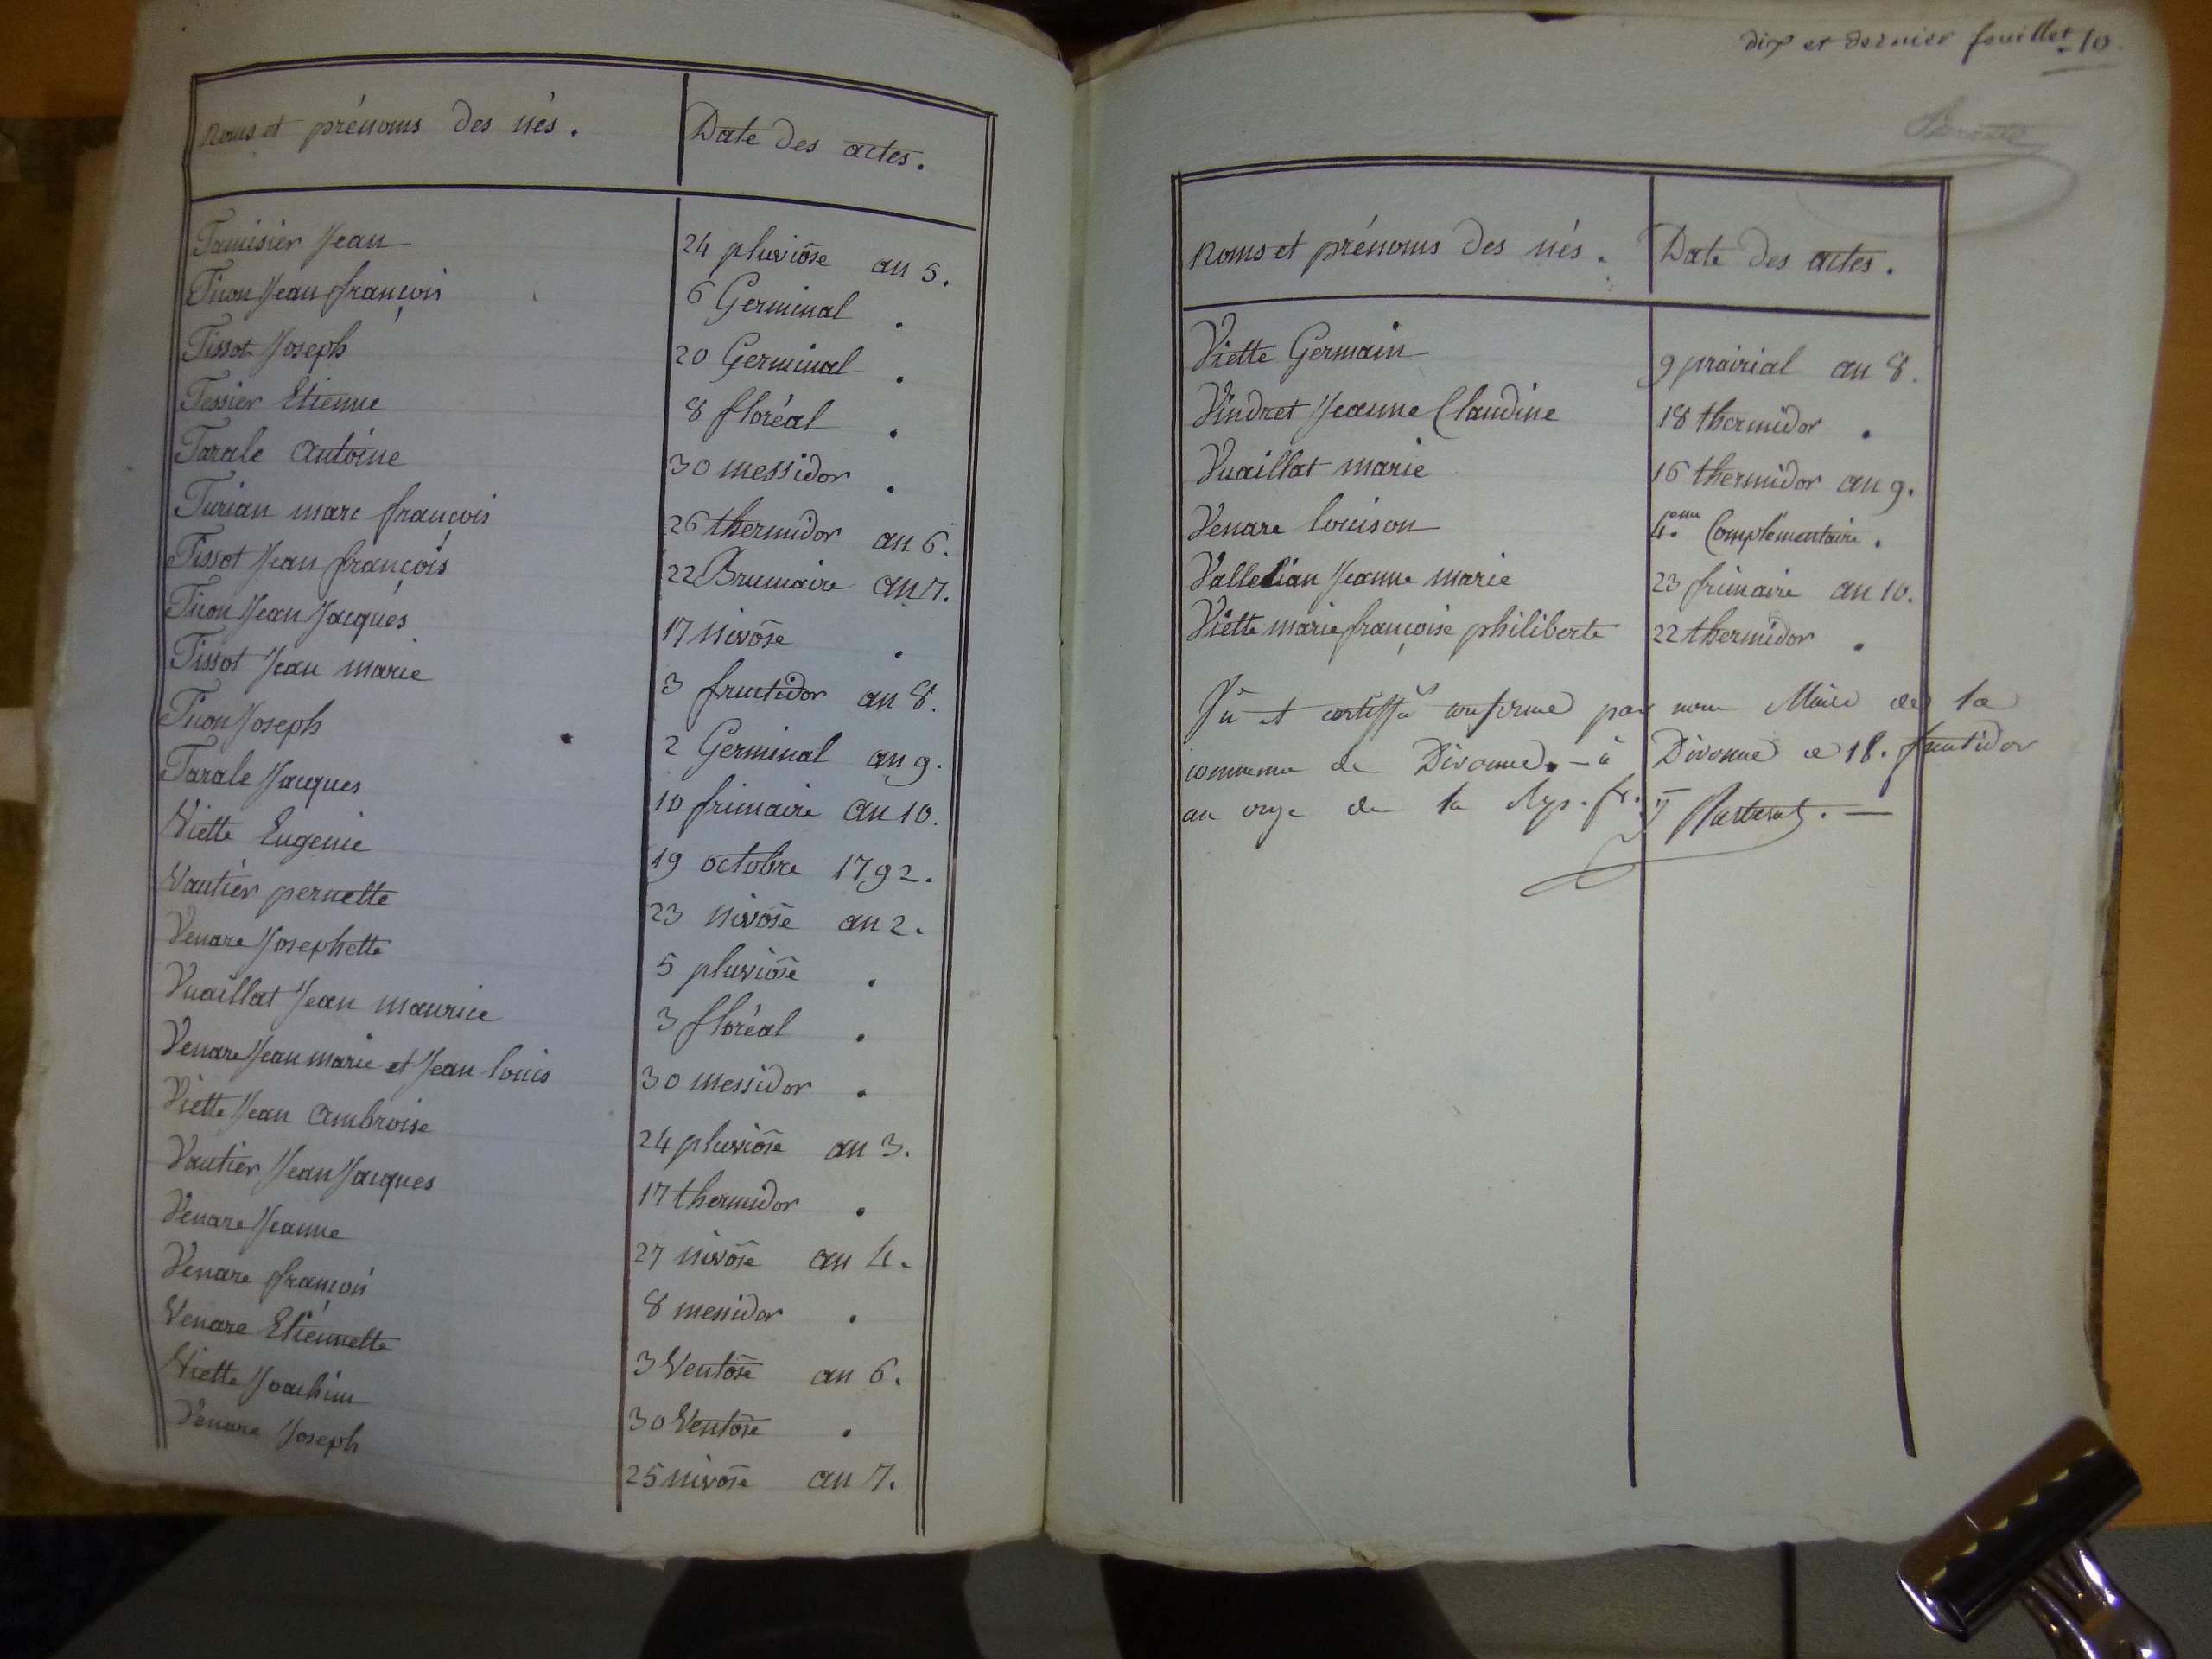 noms et prénoms des nés. Date des actes.
Tamisier Jean 24 pluviôse an 5.
Tison Jean françois 6 Germinal .
Tissot Joseph 20 Germinal .
Tessier Etienne 8 floréal .
Tarale Antoine 30 messidor .
Turian marc françois 26 thermidor an 6.
Tissot Jean françois 22 Brumaire an 7.
Tison Jean Jacques 17 nivôse .
Tissot Jean marie 3 fructidor an 8.
Tison Joseph 2 Germinal an 9.
Tarale Jacques 10 frimaire an 10.
Viette Eugenie 19 octobre 1792.
Vautier pernette 23 nivôse an 2.
Venare Josephette 5 pluviôse .
Vuaillat Jean maurice 3 floréal .
Venare Jean marie et Jean louis 30 messidor .
Viette Jean Ambroise 24 pluviôse an 3.
Vautier Jean Jacques 17 thermidor .
Venare Jeanne 27 nivôse an 4.
Venare françois 8 messidor .
Venare Etiennette 3 Ventôse an 6.
Viette Joachim 30 Ventôse .
Venare Joseph 25 nivôse an 7.
dix et dernier feuillet 10
noms et prénoms des nés. Date des actes.
Viette Germain 9 prairial an 8.
Vindret Jeanne Claudine 18 thermidor .
Vuaillat marie 16 thermidor an 9.
Venare louison 4.eme Complémentaire .
Valledian Jeanne marie 23 frimaire an 10.
Viette marie françoise philiberte 22 thermidor .
Vu et certiffié conforme par nous Maire de la
commune de Divonne. – à Divonne ce 18. fructidor
an onze de la Rep. fr.